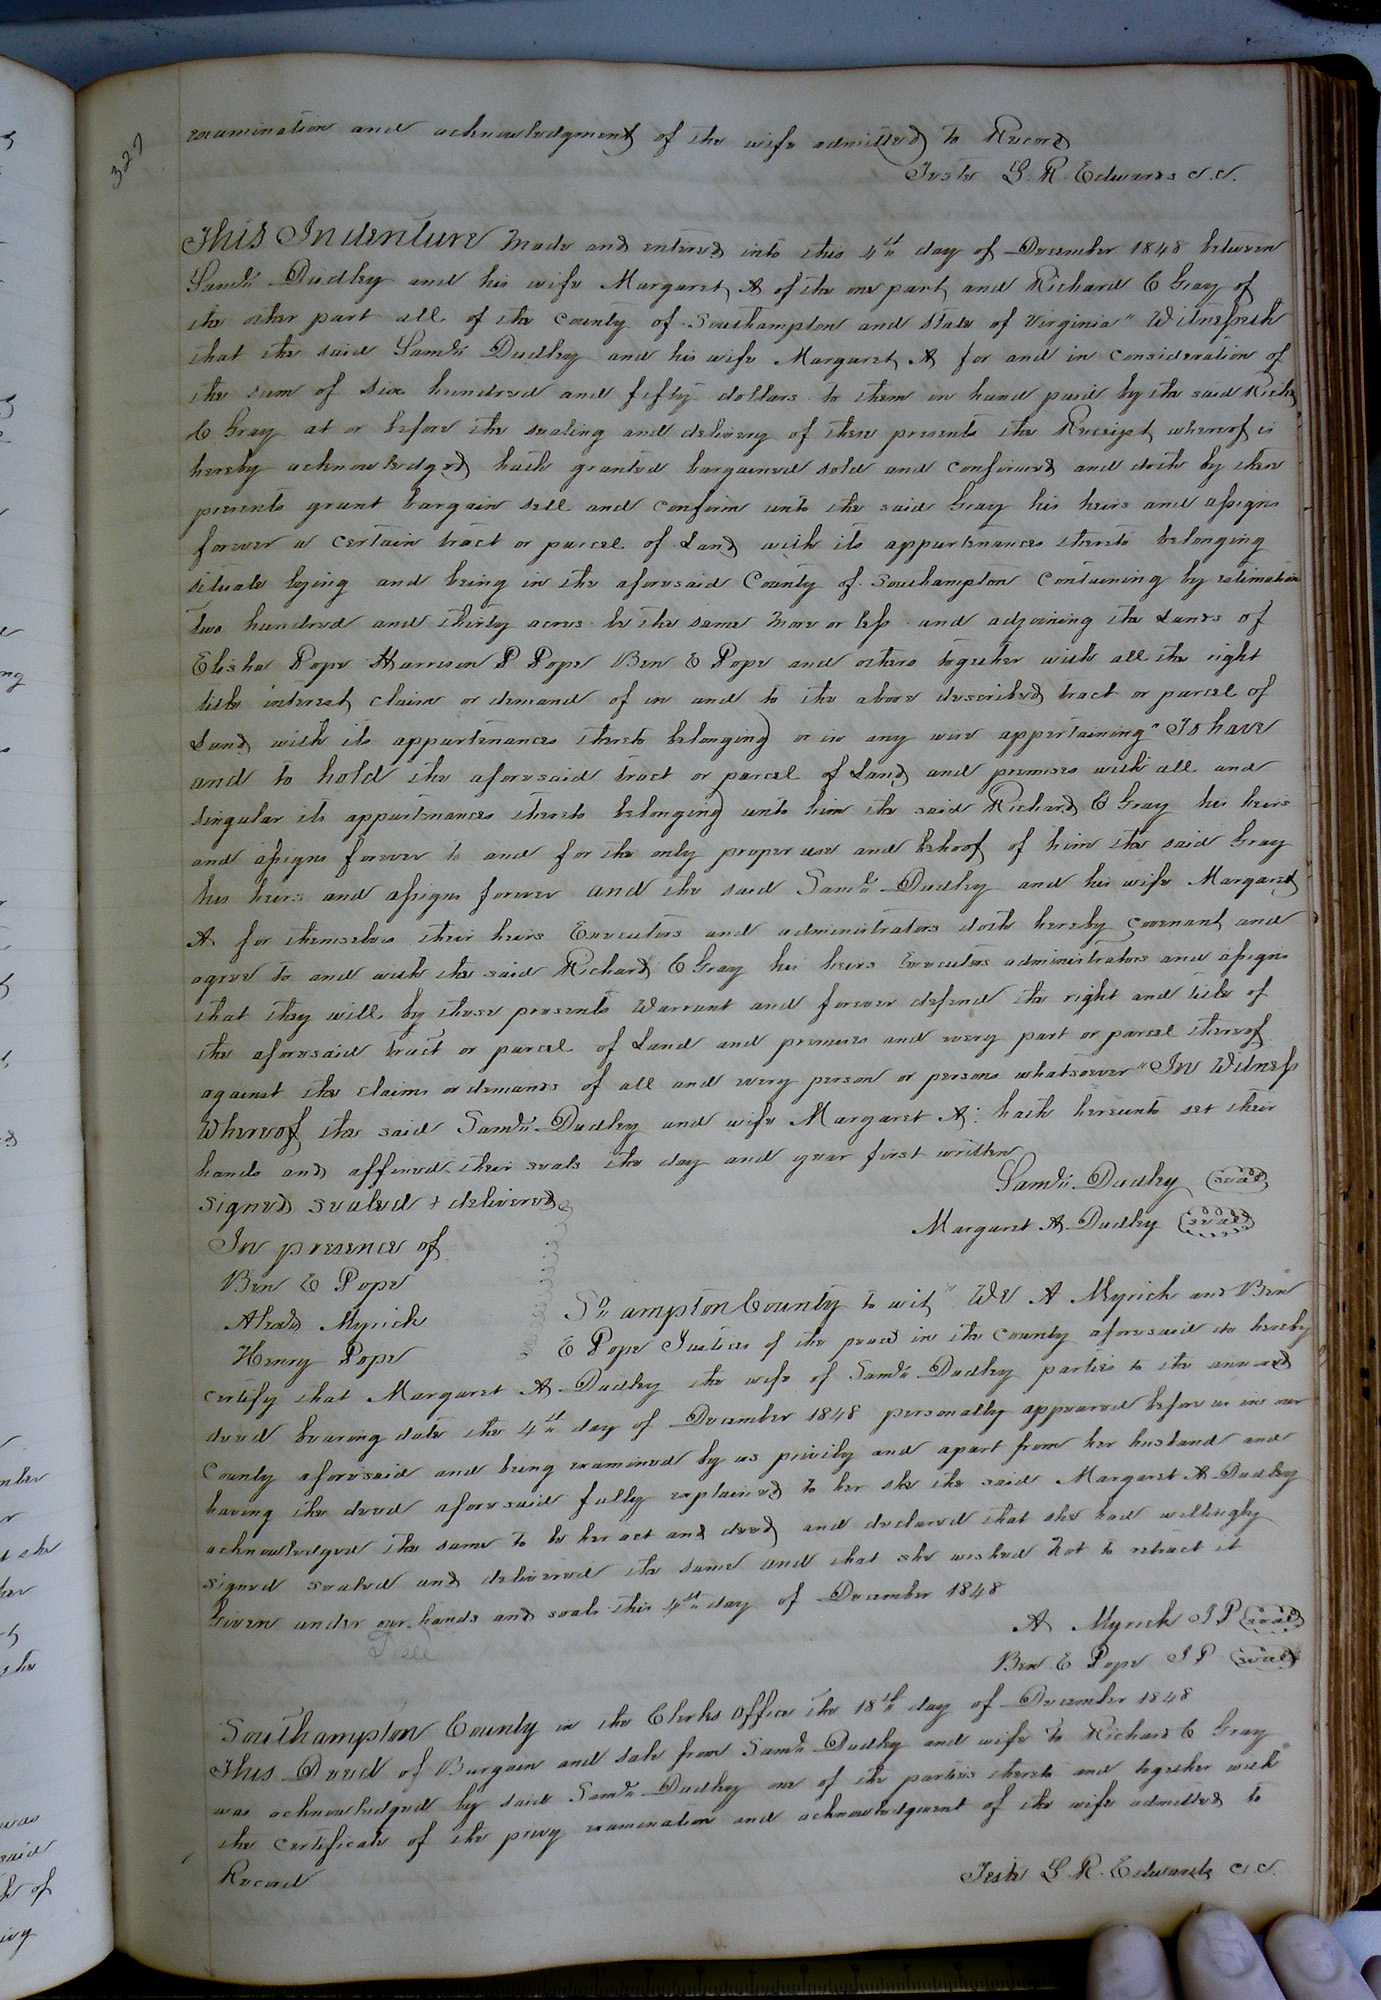 327
examination and acknowledgment of the wife admitted to Record
Teste L. R. Edwards C.C.
This Indenture Made and entered into this 4th day of December 1848 between
Saml. Dudley and his wife Margaret A of the one part and Richard C Gray of
the other part all of the County of Southampton and State of Virginia" Witnesseth
that the said Saml. Dudley and his wife Margaret A for and in consideration of
the sum of six hundred and fifty dollars to them in hand paid by the said Richd
C Gray at or before the sealing and delivery of these presents the Receipt whereof is
hereby acknowledged hath granted bargained sold and confirmed and doth by these
presents grant bargain sell and confirm unto the said Gray his heirs and assigns
forever a certain tract or parcel of Land with its appurtenances thereto belonging
situate lying and being in the aforesaid County of Southampton Containing by estimation
two hundred and thirty acres be the same More or less and adjoining the Lands of
Elisha Pope Harrison P Pope Ben E Pope and others together with all the right
title interest claim or demand of in and to the above described tract or parcel of
Land with its appurtenances thereto belonging or in any wise appertaining" To have
and to hold the aforesaid tract or parcel of Land and premises with all and
singular its appurtenances thereto belonging unto him the said Richard C Gray his heirs
and assigns forever to and for the only proper use and behoof of him the said Gray
his heirs and assigns forever and the said Saml. Dudley and his wife Margaret
A for themselves their heirs Executors and administrators doth hereby covenant and
agree to and with the said Richard C Gray his heirs Executors administrators and assigns
that they will by these presents Warrant and forever defend the right and title of
the aforesaid tract or parcel of Land and premises and every part or parcel thereof
against the claims or demands of all and every person or persons whatsoever" In Witness
Whereof the said Saml. Dudley and wife Margaret A: hath hereunto set their
hands and affixed their seals the day and year first written
Saml. Dudley (seal)
signed sealed & delivered
Margaret A Dudley (seal)
In presence of
Ben E Pope
Alexd. Myrick
Henry Pope
So. ampton County to wit" We A Myrick and Ben
E Pope Justices of the peace in the County aforesaid do hereby
certify that Margaret A Dudley the wife of Saml. Dudley parties to the annexed
deed bearing date the 4th day of December 1848 personally appeared before us in our
County aforesaid and being examined by us privily and apart from her husband and
having the deed aforesaid fully explained to her she the said Margaret A Dudley
acknowledged the same to be her act and deed and declared that she had willingly
signed sealed and delivered the same and that she wished Not to retract it
Given under our hands and seals this 4th day of December 1848
A Myrick J P (seal)
Ben E Pope J P (seal)
Southampton County in the Clerks Office the 18th day of December 1848
This Deed of Bargain and Sale from Saml. Dudley and wife to Richard C Gray
was acknowledged by said Saml. Dudley one of the parties thereto and together with
the certificate of the privy examination and acknowledgment of the wife admitted to
Record
Teste L. R. Edwards C.C.